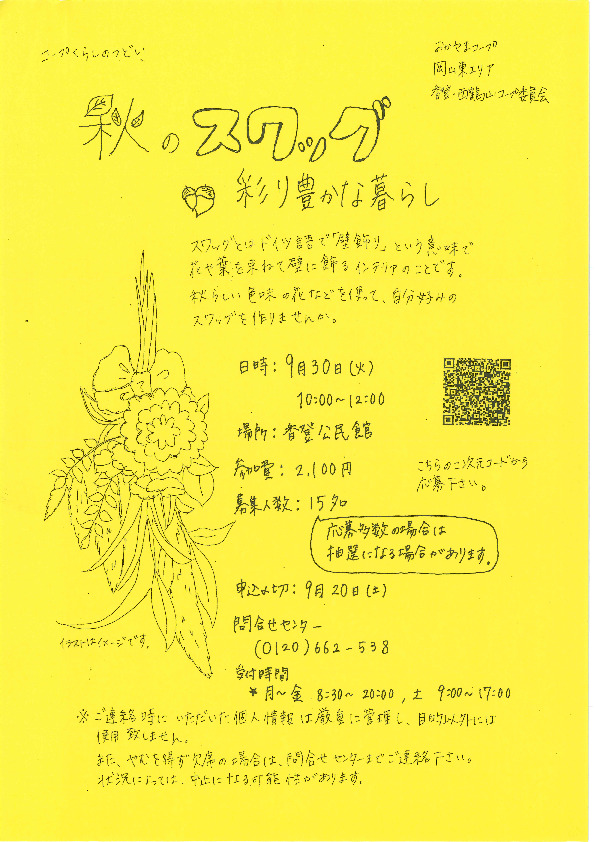 コープくらしのつどい
おかやまコープ
岡山東エリア
香登・西鶴山コープ委員会
秋のスワッグ
彩り豊かな暮らし
スワッグとはドイツ語で「壁飾り」という意味で
花や葉を束ねて壁に飾るインテリアのことです。
秋らしい色味の花などを使って、自分好みの
スワッグを作りませんか。
日時：9月30日(火)
10:00～12:00
場所：香登公民館
参加費：2,100円
募集人数：15名
こちらの二次元コードから
応募下さい。
応募多数の場合は
抽選になる場合があります。
申込〆切：9月20日(土)
問合せセンター
(0120)662-538
受付時間
*月～金 8:30～20:00，土 9:00～17:00
イラストはイメージです。
※ご連絡時にいただいた個人情報は厳重に管理し、目的以外には
使用致しません。
また、やむを得ず欠席の場合は、問合せセンターまでご連絡下さい。
状況によっては、中止になる可能性があります。